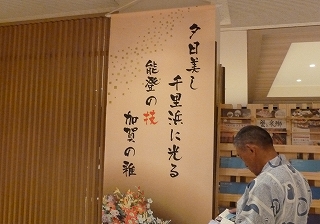 夕日美し
千里浜に光る
能登の技
加賀の雅